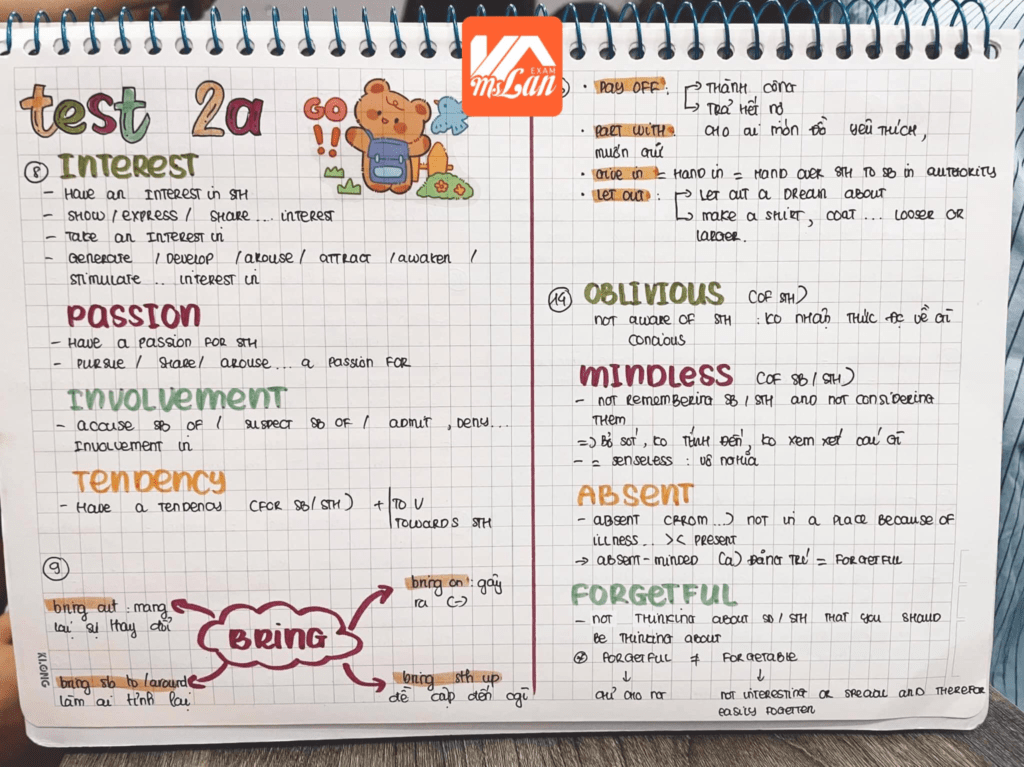 VA
EXAM
MsLan
test 2a
GO
!!
⑧ INTEREST
- HAVE AN INTEREST IN STH
- SHOW / EXPRESS / SHARE... INTEREST
- TAKE AN INTEREST IN
- GENERATE / DEVELOP / AROUSE / ATTRACT / AWAKEN /
STIMULATE .. INTEREST IN
PASSION
- HAVE A PASSION FOR STH
- PURSUE / SHARE / AROUSE... A PASSION FOR
INVOLVEMENT
- ACCUSE SB OF / SUSPECT SB OF / ADMIT, DENY...
INVOLVEMENT IN
TENDENCY
- HAVE A TENDENCY (FOR SB/STH) + TO V
TOWARDS STH
⑨
bring out : mang
lại sự thay đổi
bring on : gây
ra (-)
BRING
bring sb to /around
làm ai tỉnh lại
bring sth up
đề cập đến cgì
KLONG
• PAY OFF : → THÀNH CÔNG
→ TRẢ HẾT NỢ
• PART WITH : CHO AI MÓN ĐỒ YÊU THÍCH,
MUỐN GIỮ
• GIVE IN = HAND IN = HAND OVER STH TO SB IN AUTHORITY
• LET OUT : → LET OUT A DREAM ABOUT
→ MAKE A SHIRT, COAT ... LOOSER OR
LARGER.
⑭ OBLIVIOUS (OF STH)
NOT AWARE OF STH : KO NHẬN THỨC ĐC VỀ GÌ
CONCIOUS
MINDLESS (OF SB / STH)
- NOT REMEMBERING SB / STH AND NOT CONSIDERING
THEM
=) BỎ SÓT, KO TÍNH ĐẾN, KO XEM XÉT CÁI GÌ
- = SENSELESS : VÔ NGHĨA
ABSENT
- ABSENT (FROM...) NOT IN A PLACE BECAUSE OF
ILLNESS... >< PRESENT
→ ABSENT-MINDED (a) ĐÃNG TRÍ = FORGETFUL
FORGETFUL
- NOT THINKING ABOUT SB / STH THAT YOU SHOULD
BE THINKING ABOUT
FORGETFUL ≠ FORGETABLE
↓ ↓
NOT INTERESTING OR SPECIAL AND THEREFOR
EASILY FOGETTEN